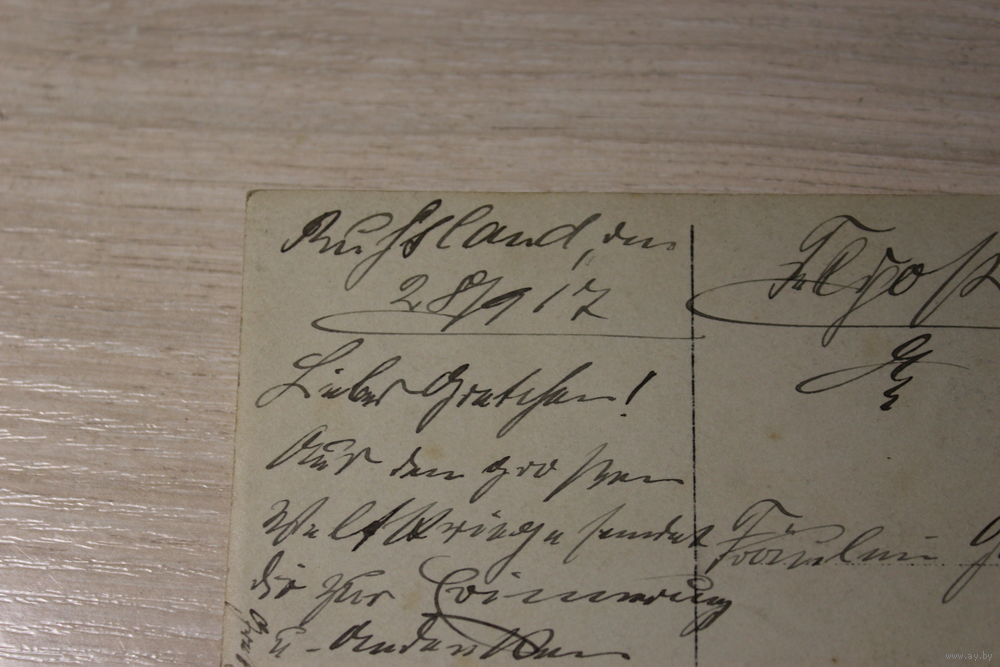 Russland, den
28/9 17
Liebes Gretchen!
Aus dem grossen
Weltkriege sendet
dir zur Erinnerung
u. Andenken
Feldpost
Fräulein
www.ay.by